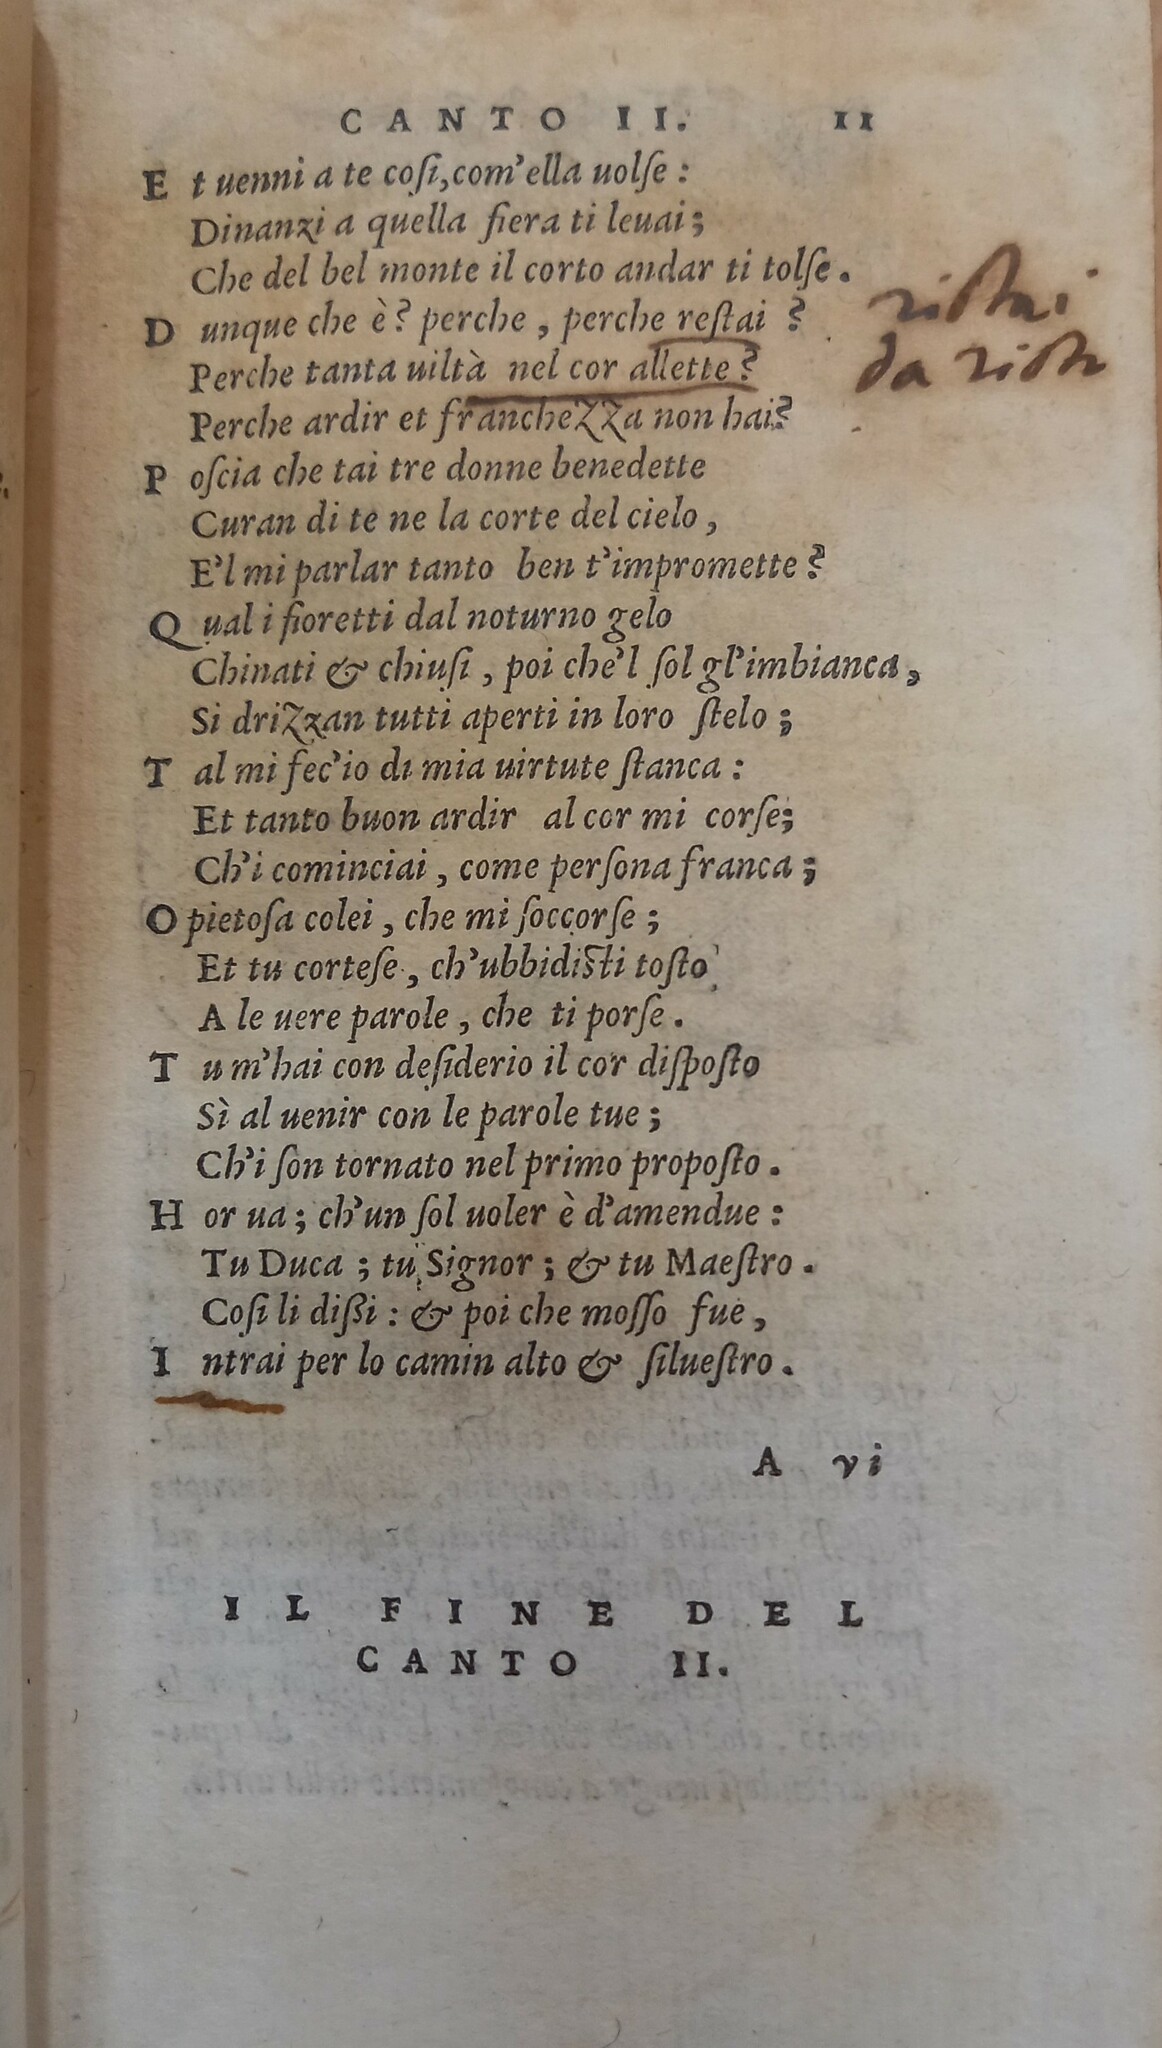 CANTO II. 11
E t uenni a te coſi, com'ella uolſe :
Dinanzi a quella fiera ti leuai ;
Che del bel monte il corto andar ti tolſe .
D unque che è? perche , perche reſtai ?
ristai
Perche tanta uiltà nel cor allette ?
da
Perche ardir et franchezza non hai?
P oſcia che tai tre donne benedette
Curan di te ne la corte del cielo ,
E'l mi parlar tanto ben t'impromette ?
Q ual i fioretti dal noturno gelo
Chinati & chiuſi , poi che'l ſol gl'imbianca ,
Si drizzan tutti aperti in loro ſtelo ;
T al mi fec'io di mia uirtute ſtanca :
Et tanto buon ardir al cor mi corſe;
Ch'i cominciai , come perſona franca ;
O pietoſa colei , che mi ſoccorſe ;
Et tu corteſe , ch'ubbidiſti toſto
A le uere parole , che ti porſe .
T u m'hai con deſiderio il cor diſpoſto
Sì al uenir con le parole tue ;
Ch'i ſon tornato nel primo propoſto .
H or ua ; ch'un ſol uoler è d'amendue :
Tu Duca ; tu Signor ; & tu Maeſtro .
Coſi li dißi : & poi che moſſo fue ,
I ntrai per lo camin alto & ſilueſtro .
A vi
IL FINE DEL
CANTO II.